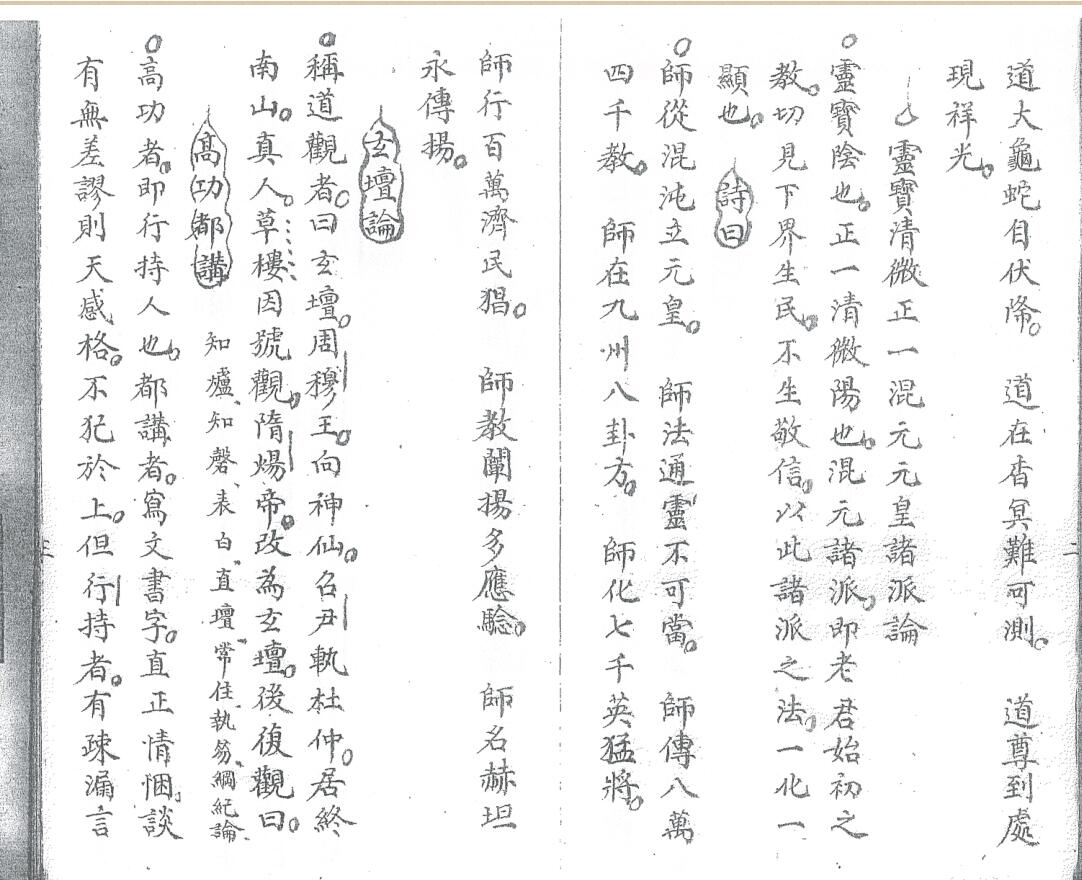 道大龜蛇自伏降。道在杳冥難可測。道尊到處
現祥光。
靈寶清微正一混元元皇諸派論
靈寶陰也。正一清微陽也。混元諸派。即老君始初之
教。切見下界生民。不生敬信。以此諸派之法。一化一
顯也。詩曰
師從混沌立元皇。師法通靈不可當。師傳八萬
四千教。師在九州八卦方。師化七千英猛將。
二
師行百萬濟民猖。師教闡揚多應驗。師名赫坦
永傳揚。
玄壇論
稱道觀者。曰玄壇。周穆王。向神仙。召尹軌杜仲。居終
南山。真人。草樓因號觀。隋煬帝。改為玄壇。後復觀曰。
高功都講 知爐、知磬、表白、直壇、常住、執笏、綱紀論、
高功者。即行持人也。都講者。寫文書字。直正情悃。談
有無差謬則天感格。不犯於上。但行持者。有疎漏言
三